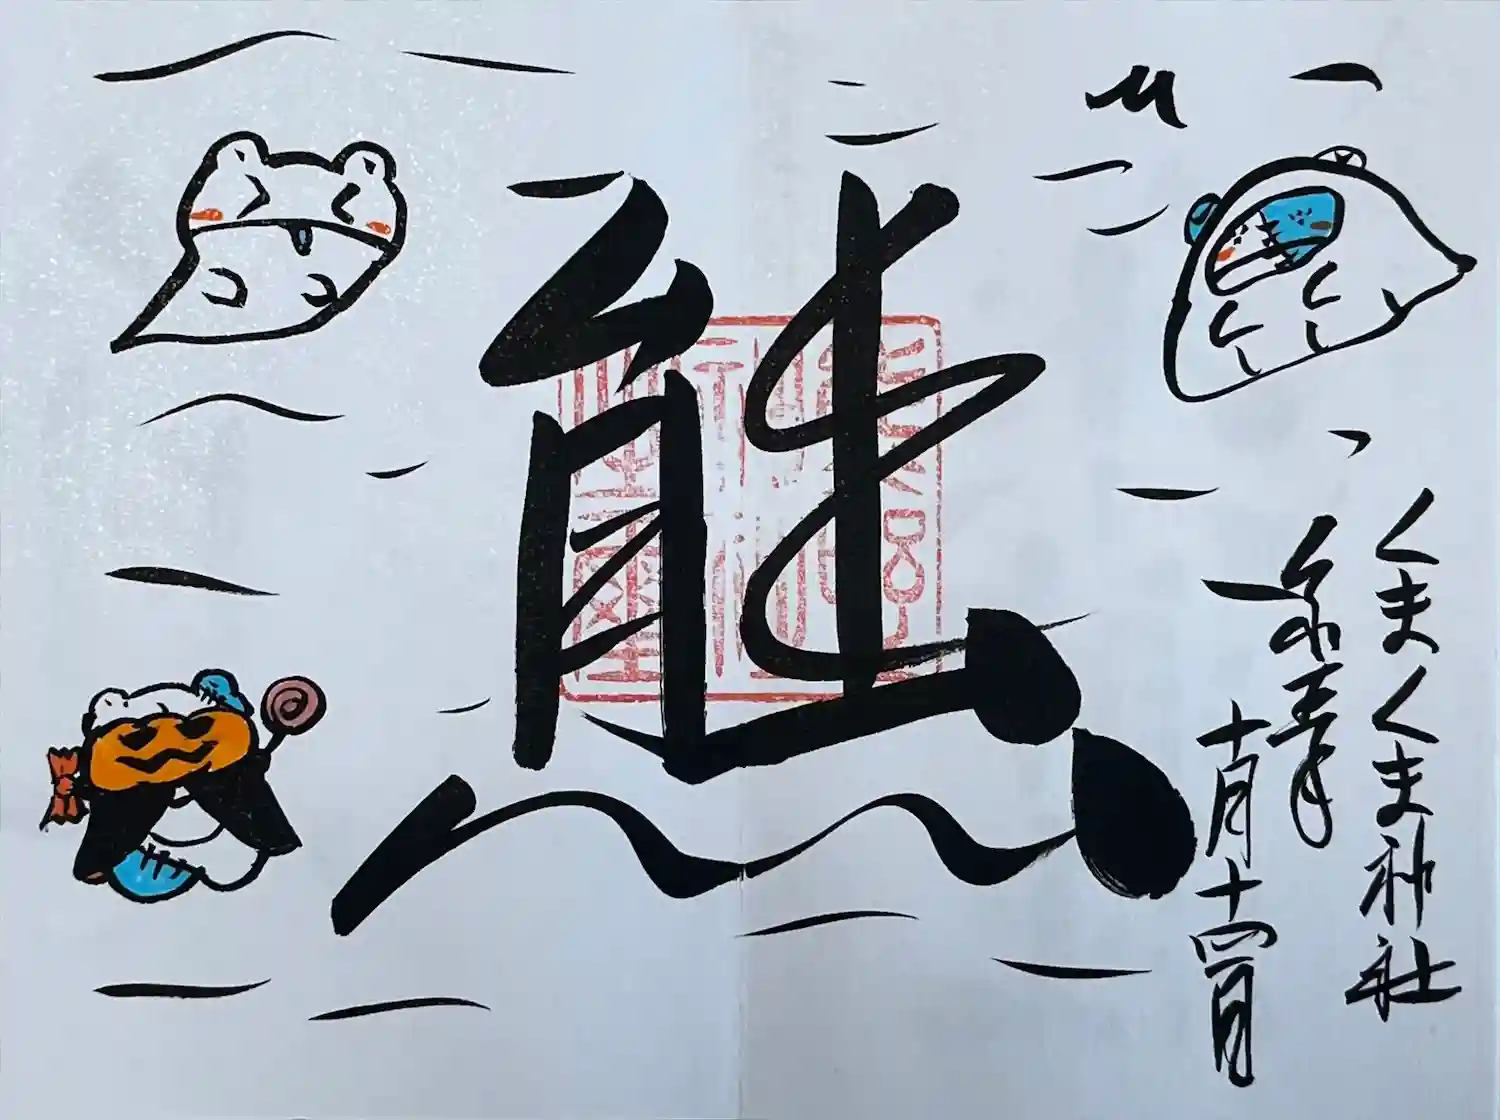 くまくま神社
令和五年
十月十四日
熊